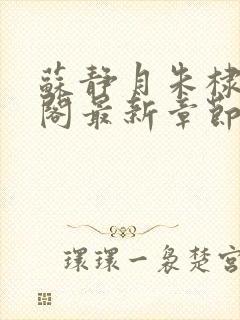 蘇靜月朱棣
閣最新章節
環環一裊楚宮